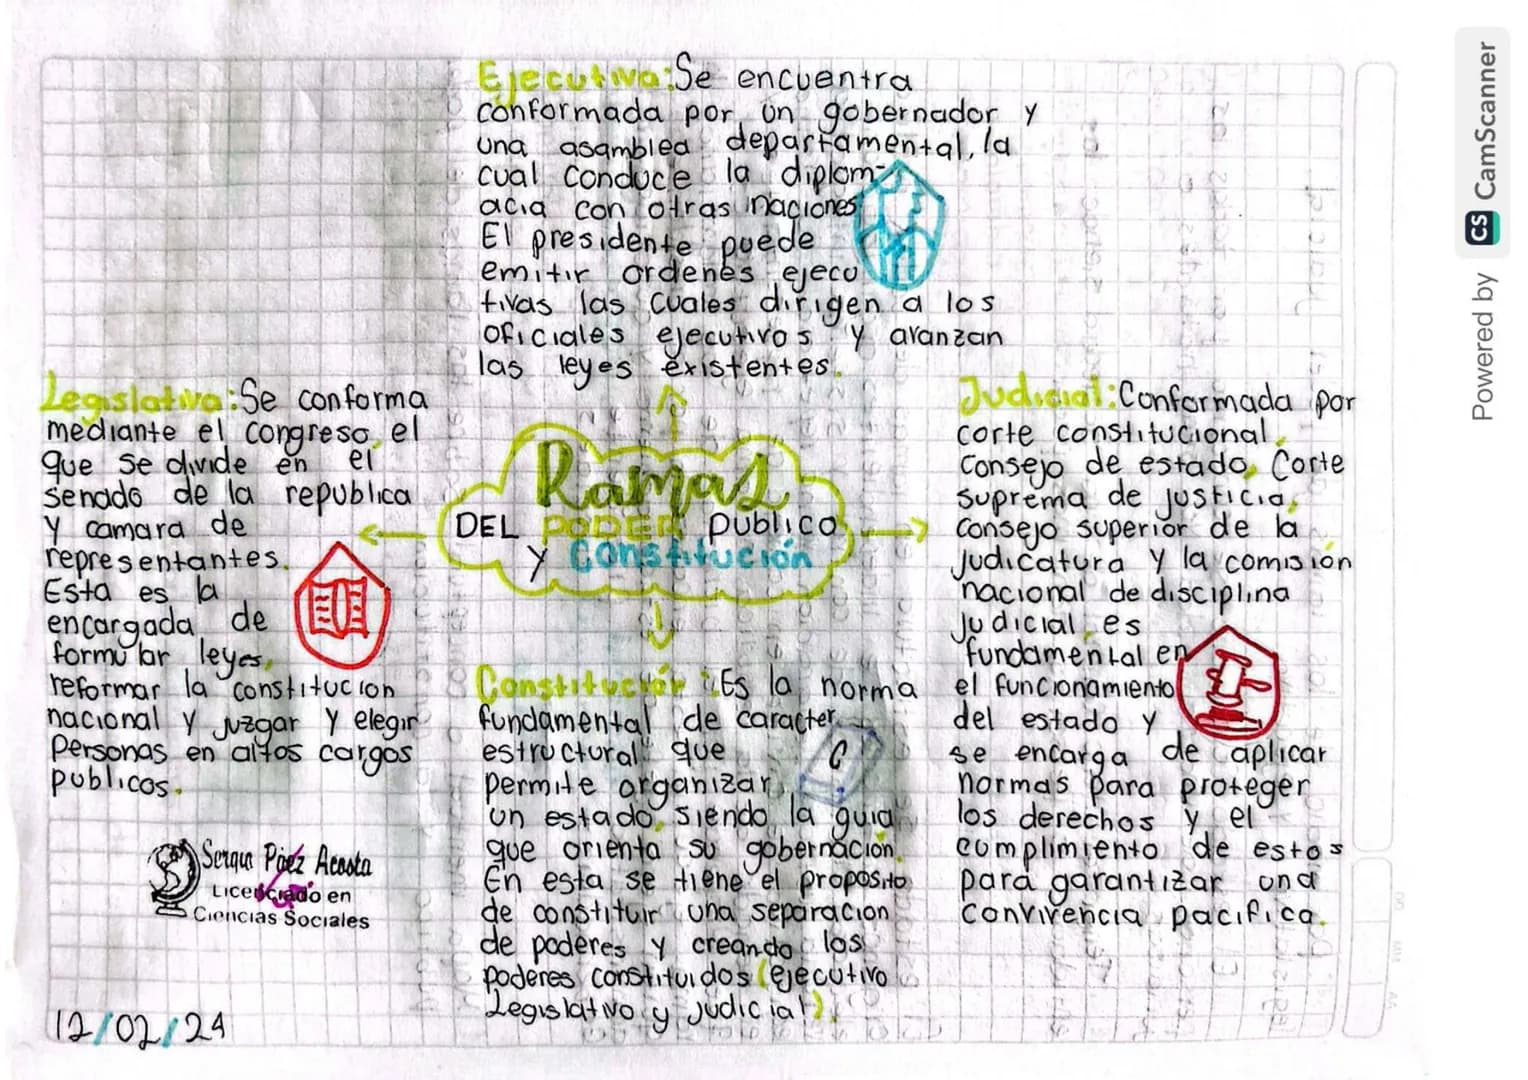 Ejecutiva: Se encuentra
conformada por un gobernador y
una asamblea departamental, la
cual conduce la diplom-
acia con otras naciones
El presidente puede
emitir ordenes ejecu
tivas las cuales dirigen a los
oficiales ejecutivos y avanzan
las leyes existentes.
Legislativa: Se conforma
mediante el congreso, el
que se divide en el
senado de la republica
y camara de
representantes.
Esta es la
encargada de
formular leyes,
reformar la constitucion
nacional y juzgar y elegir
personas en altos cargos
publicos.
Ramas
DEL PODER publico
y Constitución
Judicial: Conformada por
corte constitucional,
Consejo de estado, Corte
suprema de justicia,
consejo superior de la
judicatura y la comisión
nacional de disciplina
judicial, es
fundamental en
el funcionamiento
del estado y
se encarga de aplicar
normas para proteger
los derechos y el
cumplimiento de estos
para garantizar una
convivencia pacifica.
Constitución: Es la norma
fundamental de caracter
estructural que
permite organizar
un estado, siendo la guia
que orienta su gobernacion.
En esta se tiene el proposito
de constituir una separacion
de poderes y creando los
poderes constituidos (ejecutivo
Legislativo y judicial).
C
Páez Acosta
Licenciado en
Ciencias Sociales
12/02/24
Powered by CS CamScanner